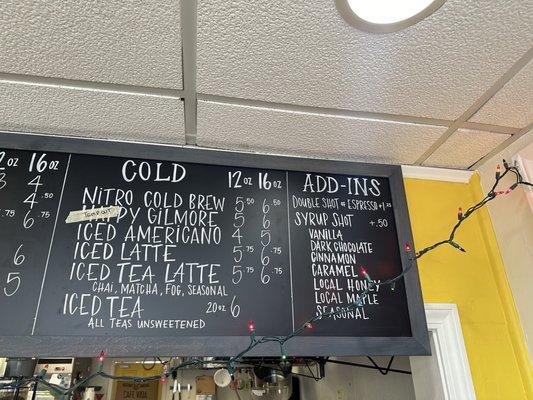 2oz 16oz
COLD 12oz 16oz
NITRO COLD BREW 5.50 6.50
PY GILMORE 5 6
ICED AMERICANO 4 5
ICED LATTE
ICED TEA LATTE 5.75 6.75
CHAI, MATCHA, FOG, SEASONAL
ICED TEA 20oz 6
ALL TEAS UNSWEETENED
ADD-INS
DOUBLE SHOT OF ESPRESSO +1.25
SYRUP SHOT +.50
VANILLA
DARK CHOCOLATE
CINNAMON
CARAMEL
LOCAL HONEY
LOCAL MAPLE
SEASONAL
CAFE VIDA